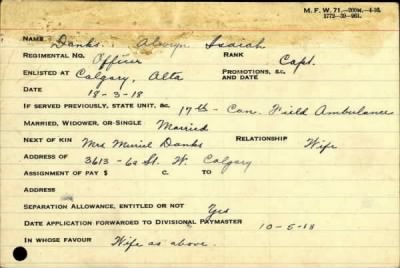 M. F. W. 71.—200M.—4-18.
1772—39—961.
NAME Danks. Alwyn Isaiah
REGIMENTAL NO. Officer RANK Capt.
ENLISTED AT Calgary, Alta PROMOTIONS, &C. AND DATE
DATE 18-3-18
IF SERVED PREVIOUSLY, STATE UNIT, &C. 17th Can. Field Ambulance
MARRIED, WIDOWER, OR SINGLE Married
NEXT OF KIN Mrs Muriel Danks RELATIONSHIP Wife
ADDRESS OF 3613 - 6a St. W. Calgary
ASSIGNMENT OF PAY $ C. TO
ADDRESS
SEPARATION ALLOWANCE, ENTITLED OR NOT Yes
DATE APPLICATION FORWARDED TO DIVISIONAL PAYMASTER 10-5-18
IN WHOSE FAVOUR Wife as above.